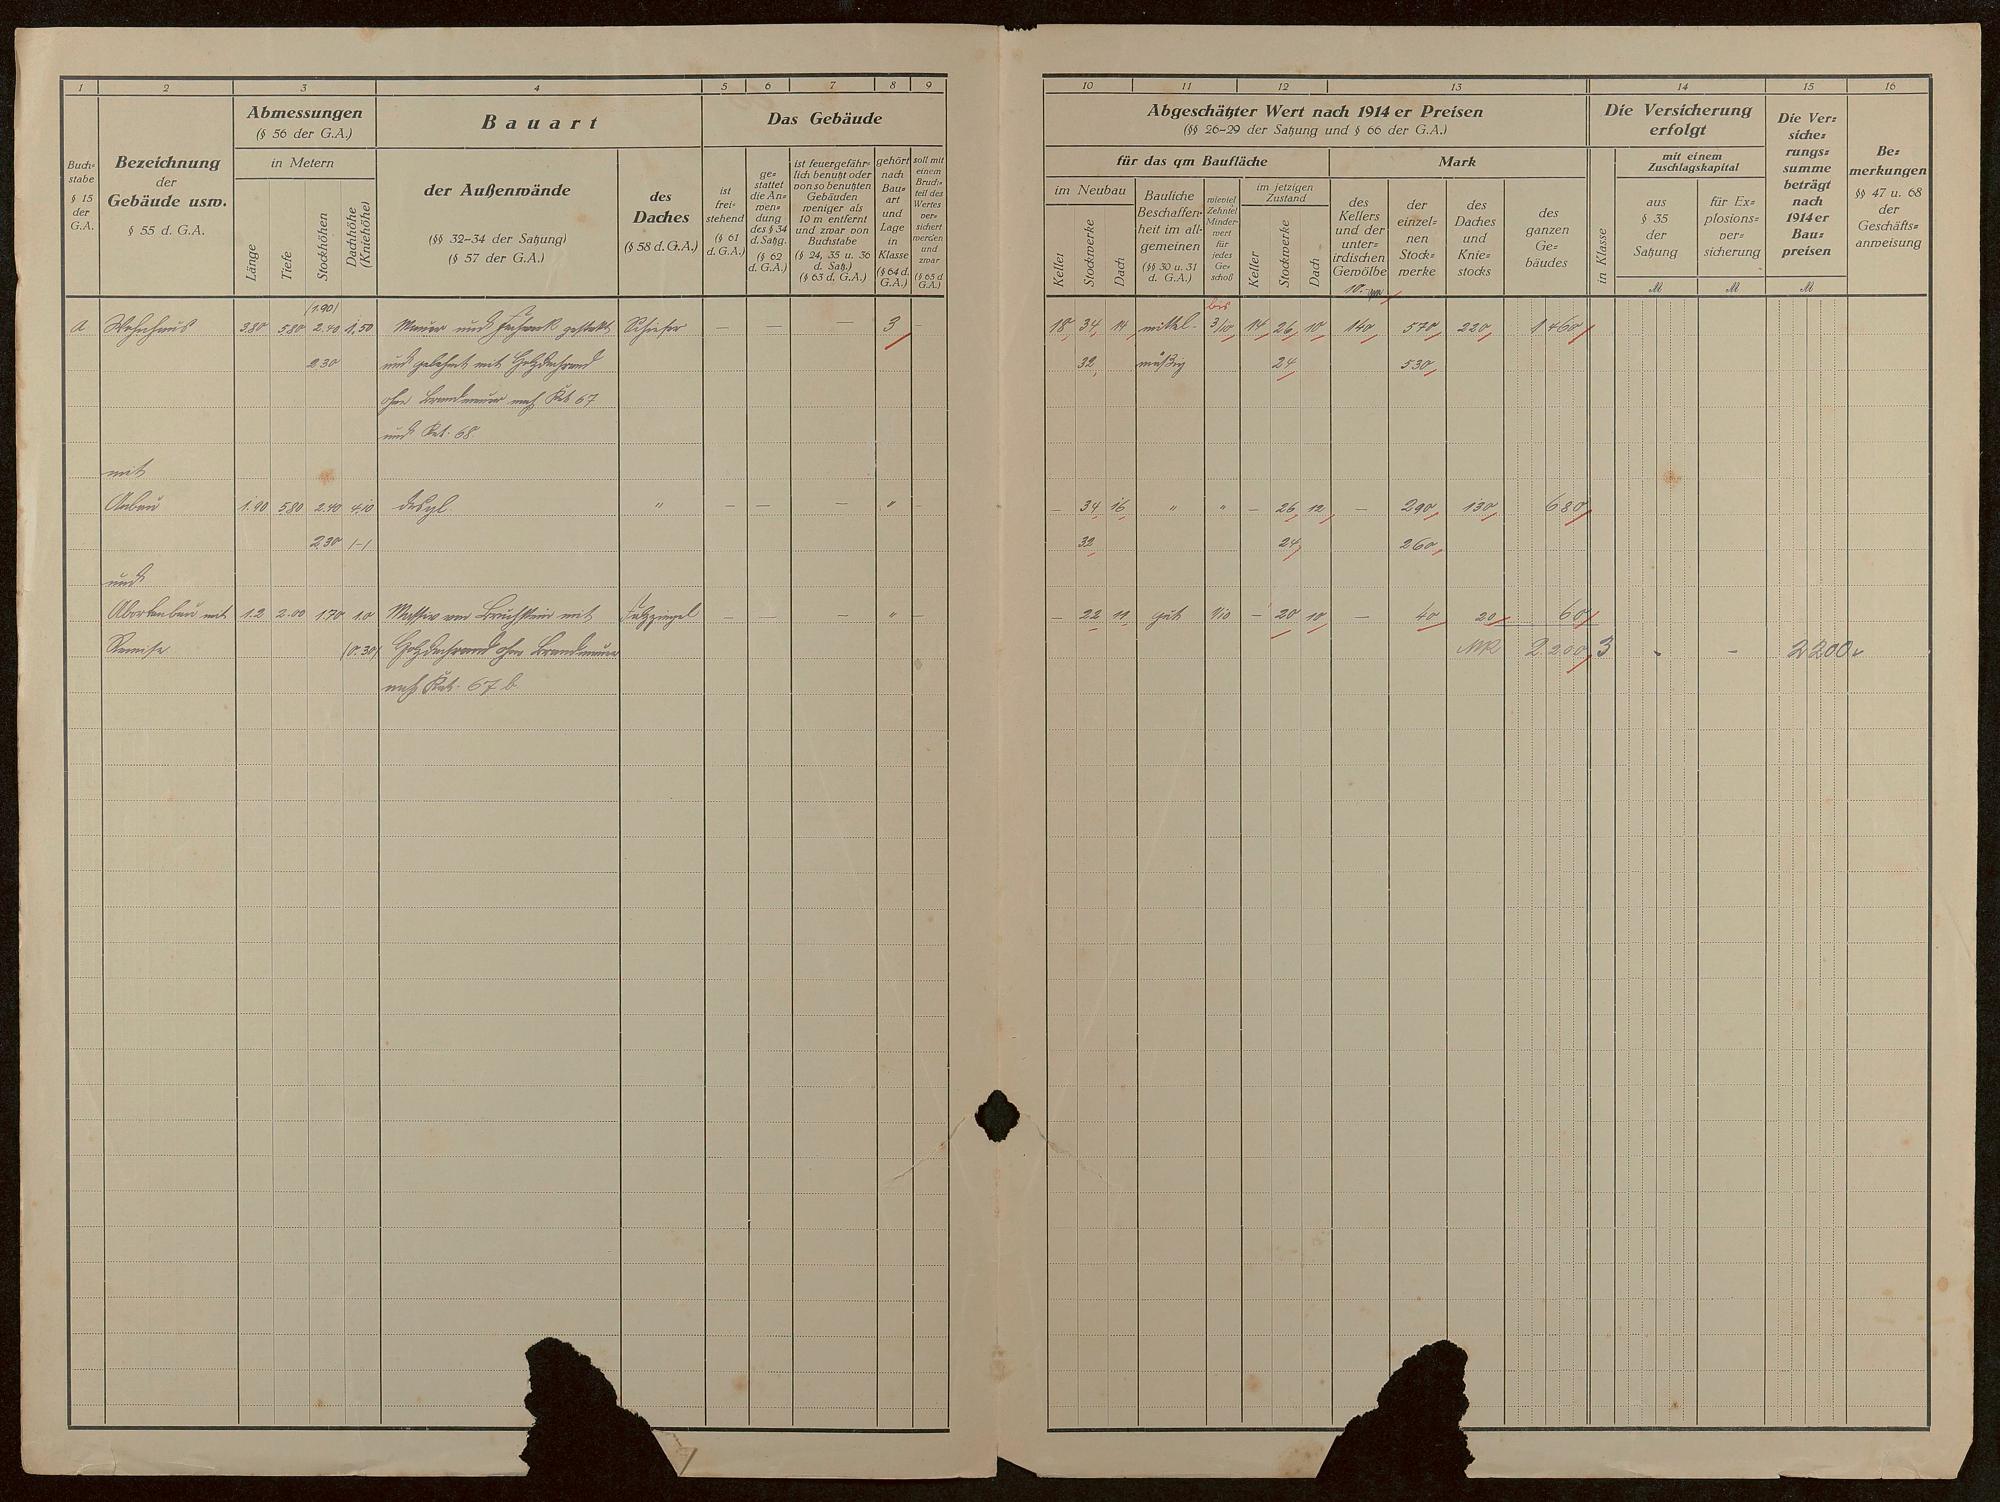 1 2 3 4 5 6 7 8 9
Buch=
stabe
§ 15
der
G.A.
Bezeichnung
der
Gebäude usw.
§ 55 d. G.A.
Abmessungen
(§ 56 der G.A.)
in Metern
Länge
Tiefe
Stockhöhen
Dachhöhe
(Kniehöhe)
Bauart
der Außenwände
(§§ 32–34 der Satzung)
(§ 57 der G.A.)
des
Daches
(§ 58 d. G.A.)
Das Gebäude
ist
frei=
stehend
(§ 61
d. G.A.)
ge=
stattet
die An=
wen=
dung
des § 34
d. Satzg.
(§ 62
d. G.A.)
ist feuergefähr=
lich benutzt oder
von so benutzten
Gebäuden
weniger als
10 m entfernt
und zwar von
Buchstabe
(§ 24, 35 u. 36
d. Satz.)
(§ 63 d. G.A.)
gehört
nach
Bau=
art
und
Lage
in
Klasse
(§ 64 d.
G.A.)
soll mit
einem
Bruch=
teil des
Wertes
ver=
sichert
werden
und
zwar
(§ 65 d.
G.A.)
(1.90)
a Wohnhaus 3.80 5.80 2.40 1,50 Mauer und Fachwerk gestakt Schiefer — — — 3 —
2.30 und gelehmt mit Holzdachrand
ohne Brandmauer nach Kat 67
und Kat. 68.
mit
Anbau 1.90 5.80 2.40 4.10 desgl. " — — — " —
2.30 (–)
und
Abortanbau mit 1.2 2.00 1.70 1.0 Massiv von Bruchstein mit Falzziegel — — — " —
Remise (0.30) Holzdachrand ohne Brandmauer
nach Kat. 67 b.
10 11 12 13 14 15 16
Abgeschätzter Wert nach 1914er Preisen
(§§ 26–29 der Satzung und § 66 der G.A.)
für das qm Baufläche
im Neubau
Keller
Stockwerke
Dach
Bauliche
Beschaffen=
heit im all=
gemeinen
(§§ 30 u. 31
d. G.A.)
wieviel
Zehntel
Minder=
wert
für
jedes
Ge=
schoß
im jetzigen
Zustand
Keller
Stockwerke
Dach
Mark
des
Kellers
und der
unter=
irdischen
Gewölbe
der
einzel=
nen
Stock=
werke
des
Daches
und
Knie=
stocks
des
ganzen
Ge=
bäudes
in Klasse
Die Versicherung
erfolgt
mit einem
Zuschlagskapital
aus
§ 35
der
Satzung
für Ex=
plosions=
ver=
sicherung
Die Ver=
siche=
rungs=
summe
beträgt
nach
1914er
Bau=
preisen
Be=
merkungen
§§ 47 u. 68
der
Geschäfts=
anweisung
M M M
10.– qm
bis
18 34 14 mittel- 3/10 14 26 10 140 570 220 1460
32 mäßig 24 530
— 34 16 " " — 26 12 — 290 130 680
32 24 260
— 22 11 gut 1/10 — 20 10 — 40 20 60
2200 3 - - 2200